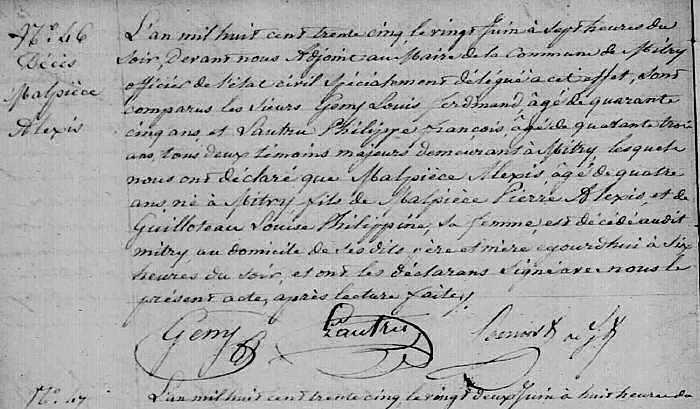 N.º 46
Décès
Malpièce
Alexis
L'an mil huit cent trente cinq, le vingt Juin à Sept heures du
Soir, Devant nous Adjoint au Maire de la Commune de Mitry
officier de l'état civil Spécialement délégué à cet effet, Sont
comparus les Sieurs Gemy Louis Ferdinand âgé de quarante
cinq ans et Lautru Philippe François, âgé de quarante trois
ans, tous deux témoins majeurs demeurant à Mitry lesquels
nous ont déclaré que Malpièce Alexis âgé de quatre
ans, né à Mitry fils de Malpièce Pierre Alexis, et de
Guilloteau Louise Philippine, Sa femme, est décédé audit
mitry au domicile de ses dits père et mère cejourd'hui à Six
heures du Soir, et ont les déclarans Signé avec nous le
présent acte, après lecture faite,
Gemy Lautru
N.º 47
L'an mil huit cent trente cinq, le vingt deux Juin à huit heures du